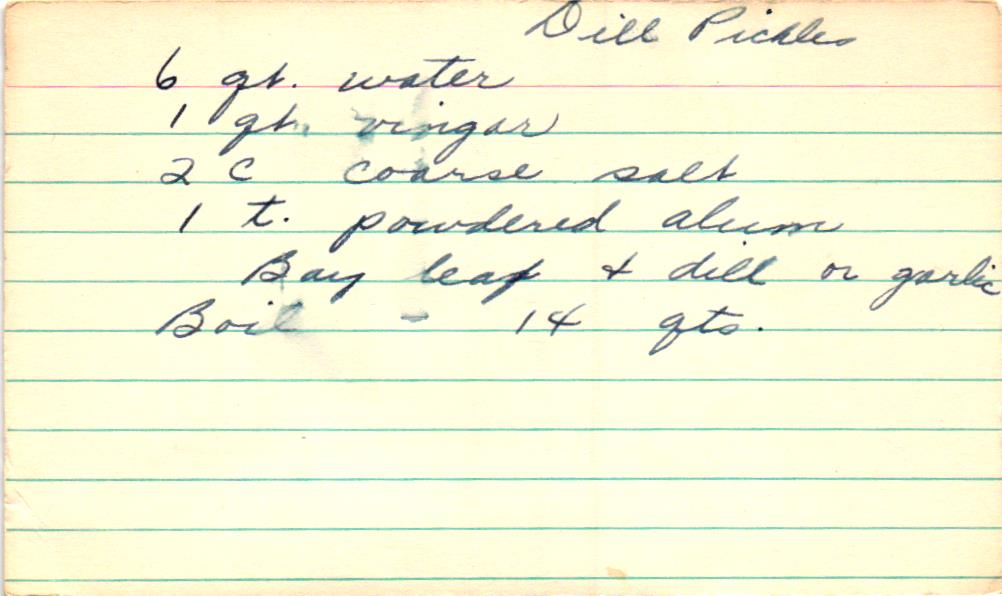 Dill Pickles
6 qt. water
1 qt. vingar
2 C coarse salt
1 t. powdered alum
Bay leaf & dill or garlic
Boil - 14 qts.